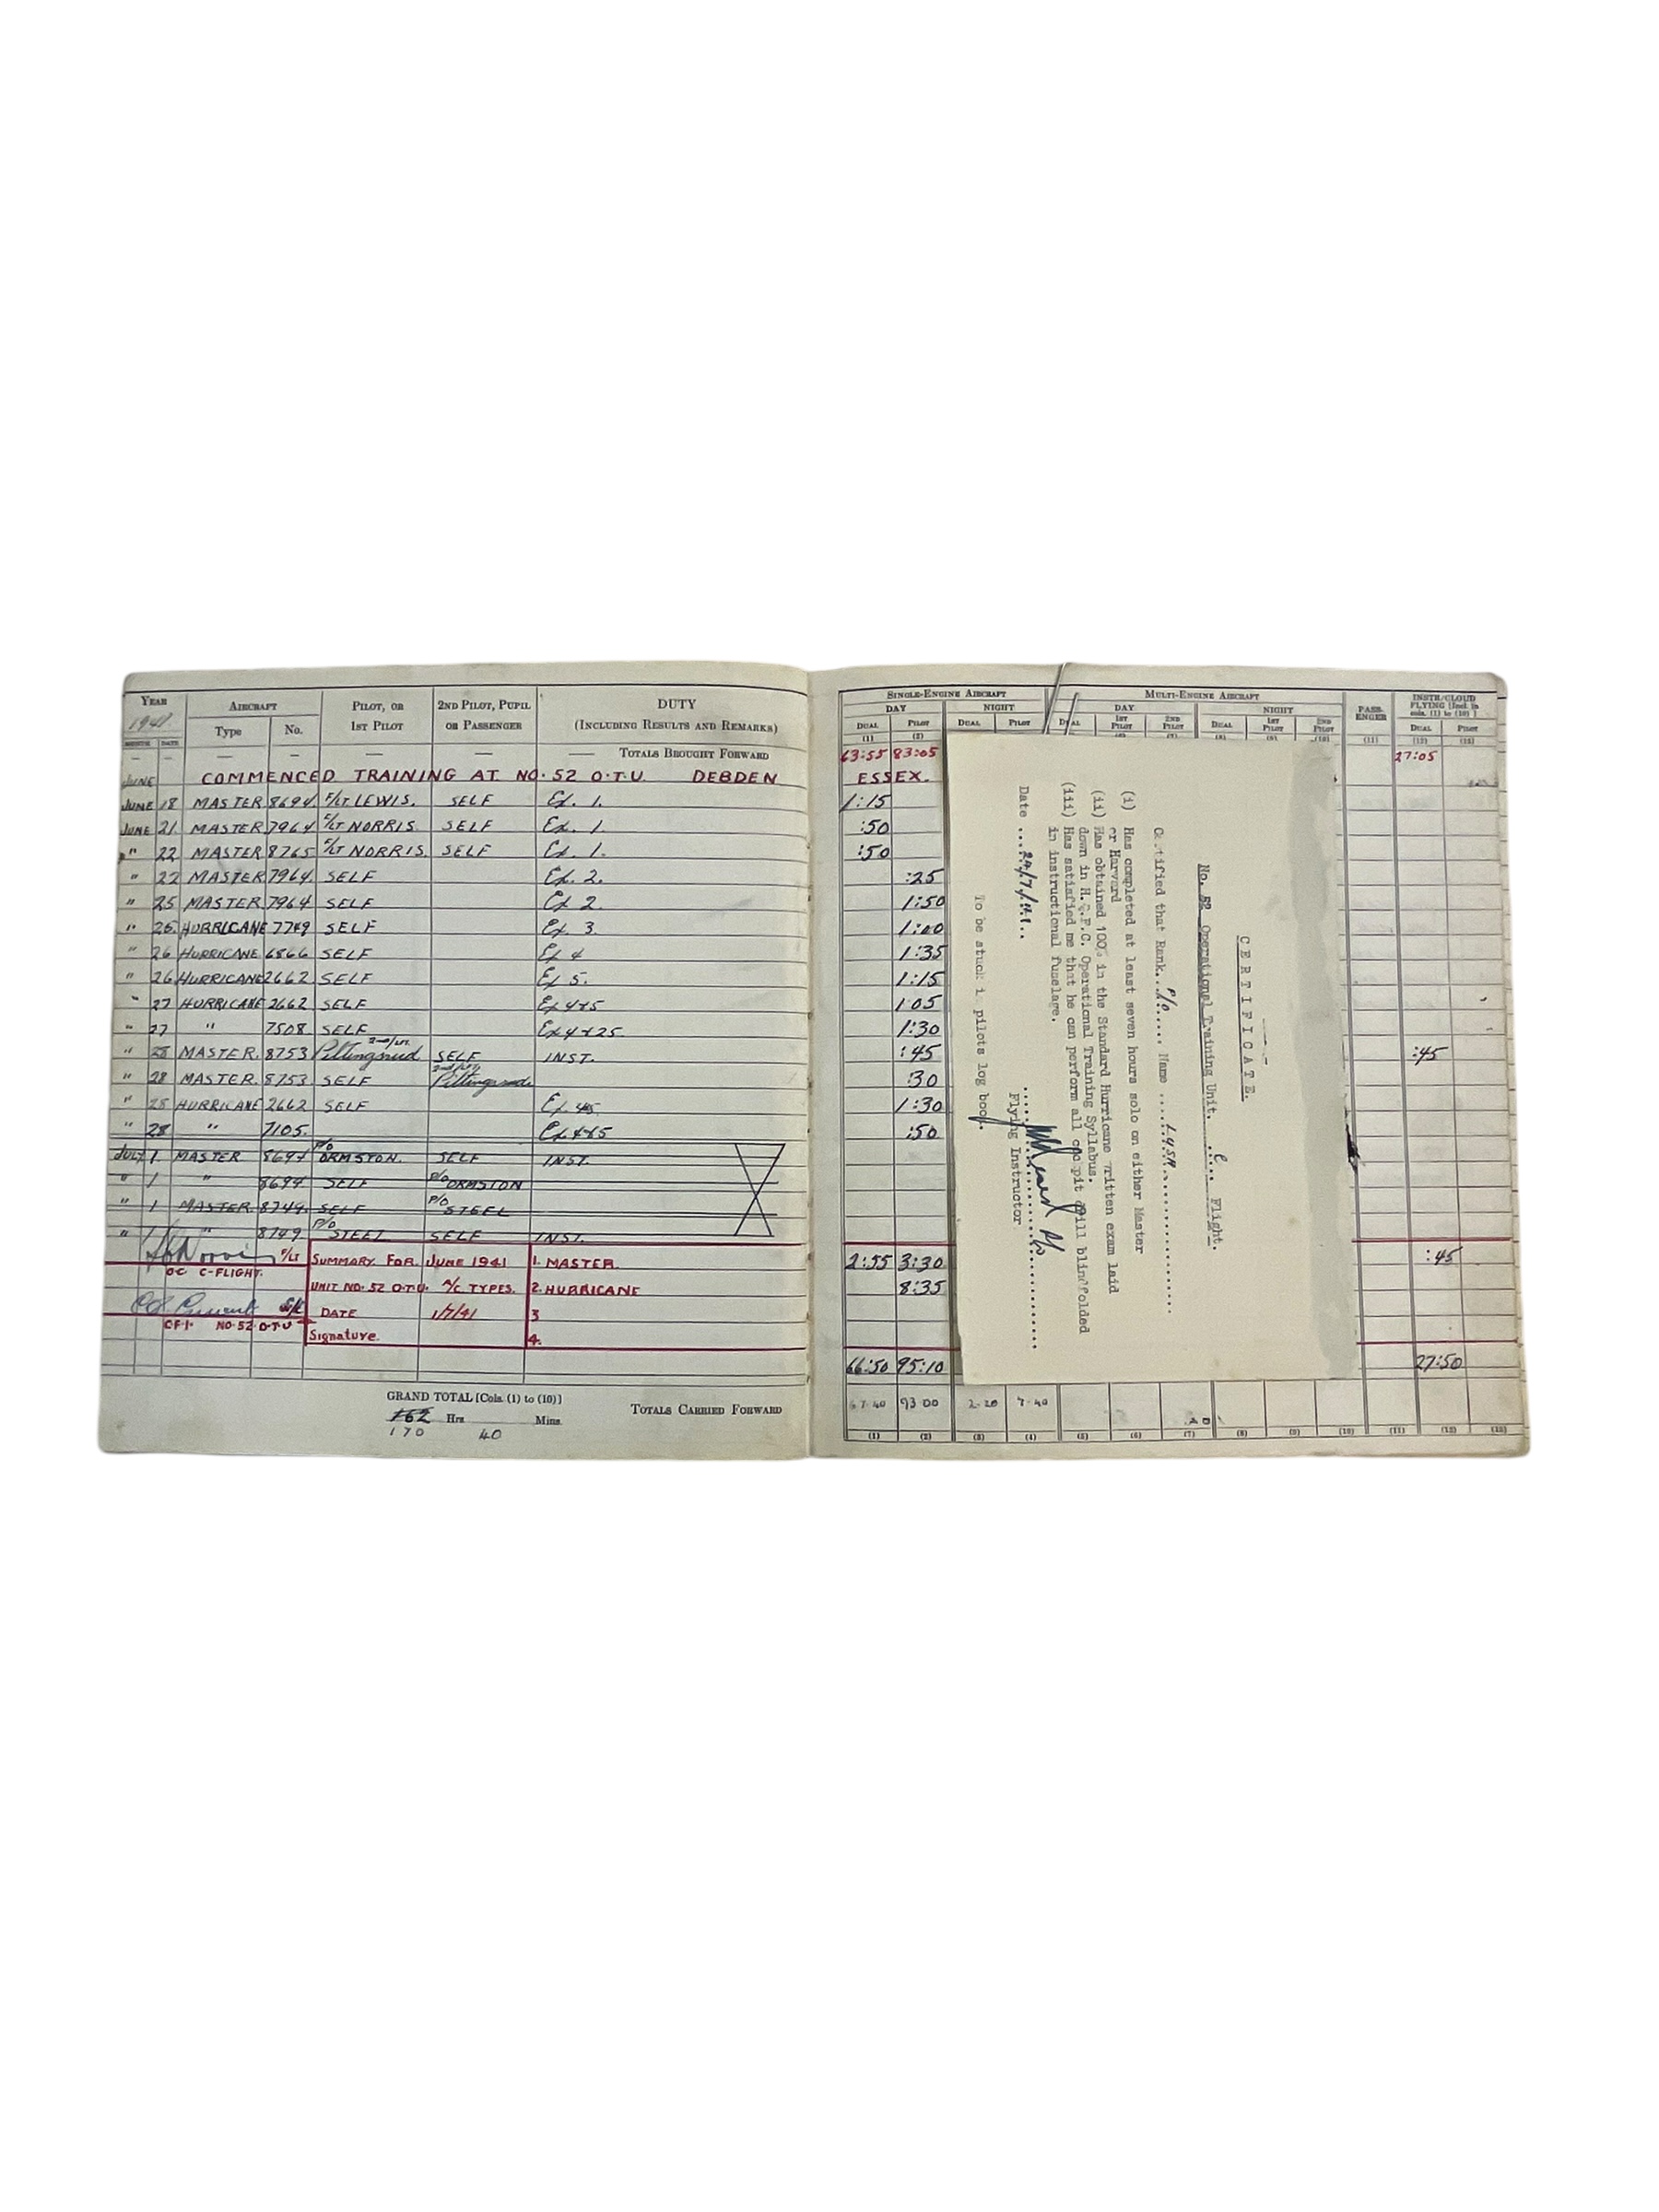 YEAR AIRCRAFT PILOT, OR 2ND PILOT, PUPIL DUTY
1941 Type No. 1ST PILOT OR PASSENGER (INCLUDING RESULTS AND REMARKS)
MONTH DATE
— — — — — — TOTALS BROUGHT FORWARD
JUNE COMMENCED TRAINING AT NO. 52 O.T.U. DEBDEN
JUNE 18 MASTER 8694 F/LT LEWIS. SELF Ex. 1.
JUNE 21 MASTER 7964 F/LT NORRIS SELF Ex. 1.
" 22 MASTER 8765 F/LT NORRIS. SELF Ex. 1.
" 22 MASTER 7964. SELF Ex. 2.
" 25 MASTER 7964 SELF Ex 2.
" 26. HURRICANE 7749 SELF Ex. 3.
" 26 HURRICANE 6866 SELF Ex 4
" 26 HURRICANE 2662 SELF Ex 5.
" 27 HURRICANE 2662 SELF Ex 4+5
" 27 " 7508 SELF Ex 4+25
" 28 MASTER. 8753 2nd/Lt. SELF INST.
" 28 MASTER. 8753 SELF 2nd/Lt.
" 28 HURRICANE 2662 SELF Ex 45
" 28 " 7105. Ex 4+5
JULY 1. MASTER 8694 P/O ORMSTON. SELF INST.
" 1 " 8694 SELF P/O ORMSTON
" 1 MASTER 8749. SELF P/O STEEL
" 1 " 8749 P/O STEEL SELF INST.
F/LT SUMMARY FOR JUNE 1941 1. MASTER.
OC C-FLIGHT. UNIT NO. 52 O.T.U. A/C TYPES. 2. HURRICANE
S/L DATE 1/7/41 3
CFI. NO. 52 O.T.U Signature. 4.
GRAND TOTAL [Cols. (1) to (10)]
162 Hrs Mins. TOTALS CARRIED FORWARD
170 40
SINGLE-ENGINE AIRCRAFT MULTI-ENGINE AIRCRAFT PASS-ENGER INSTR/CLOUD FLYING [Incl. in cols. (1) to (10)]
DAY NIGHT DAY NIGHT
DUAL PILOT DUAL PILOT DUAL 1ST PILOT 2ND PILOT DUAL 1ST PILOT 2ND PILOT DUAL PILOT
(1) (2) (11) (12) (13)
63:55 83:05 27:05
ESSEX.
1:15
:50
:50
:25
1:50
1:00
1:35
1:15
1 05
1:30
:45 :45
30
1:30
:50
2:55 3:30 :45
8:35
66:50 95:10 27:50
67.40 93.00 2.20 7.40
(1) (2) (3) (4) (5) (6) (7) (8) (9) (10) (11) (12) (13)
CERTIFICATE.
No. 52 Operational Training Unit. C Flight.
Certified that Rank. P/O Name
(i) Has completed at least seven hours solo on either Master
or Harvard
(ii) Has obtained 100% in the Standard Hurricane written exam laid
down in H.Q.F.C. Operational Training Syllabus.
(iii) Has satisfied me that he can perform all cockpit drill blindfolded
in instructional fuselage.
Date
Flying Instructor
To be stuck in pilots log book.